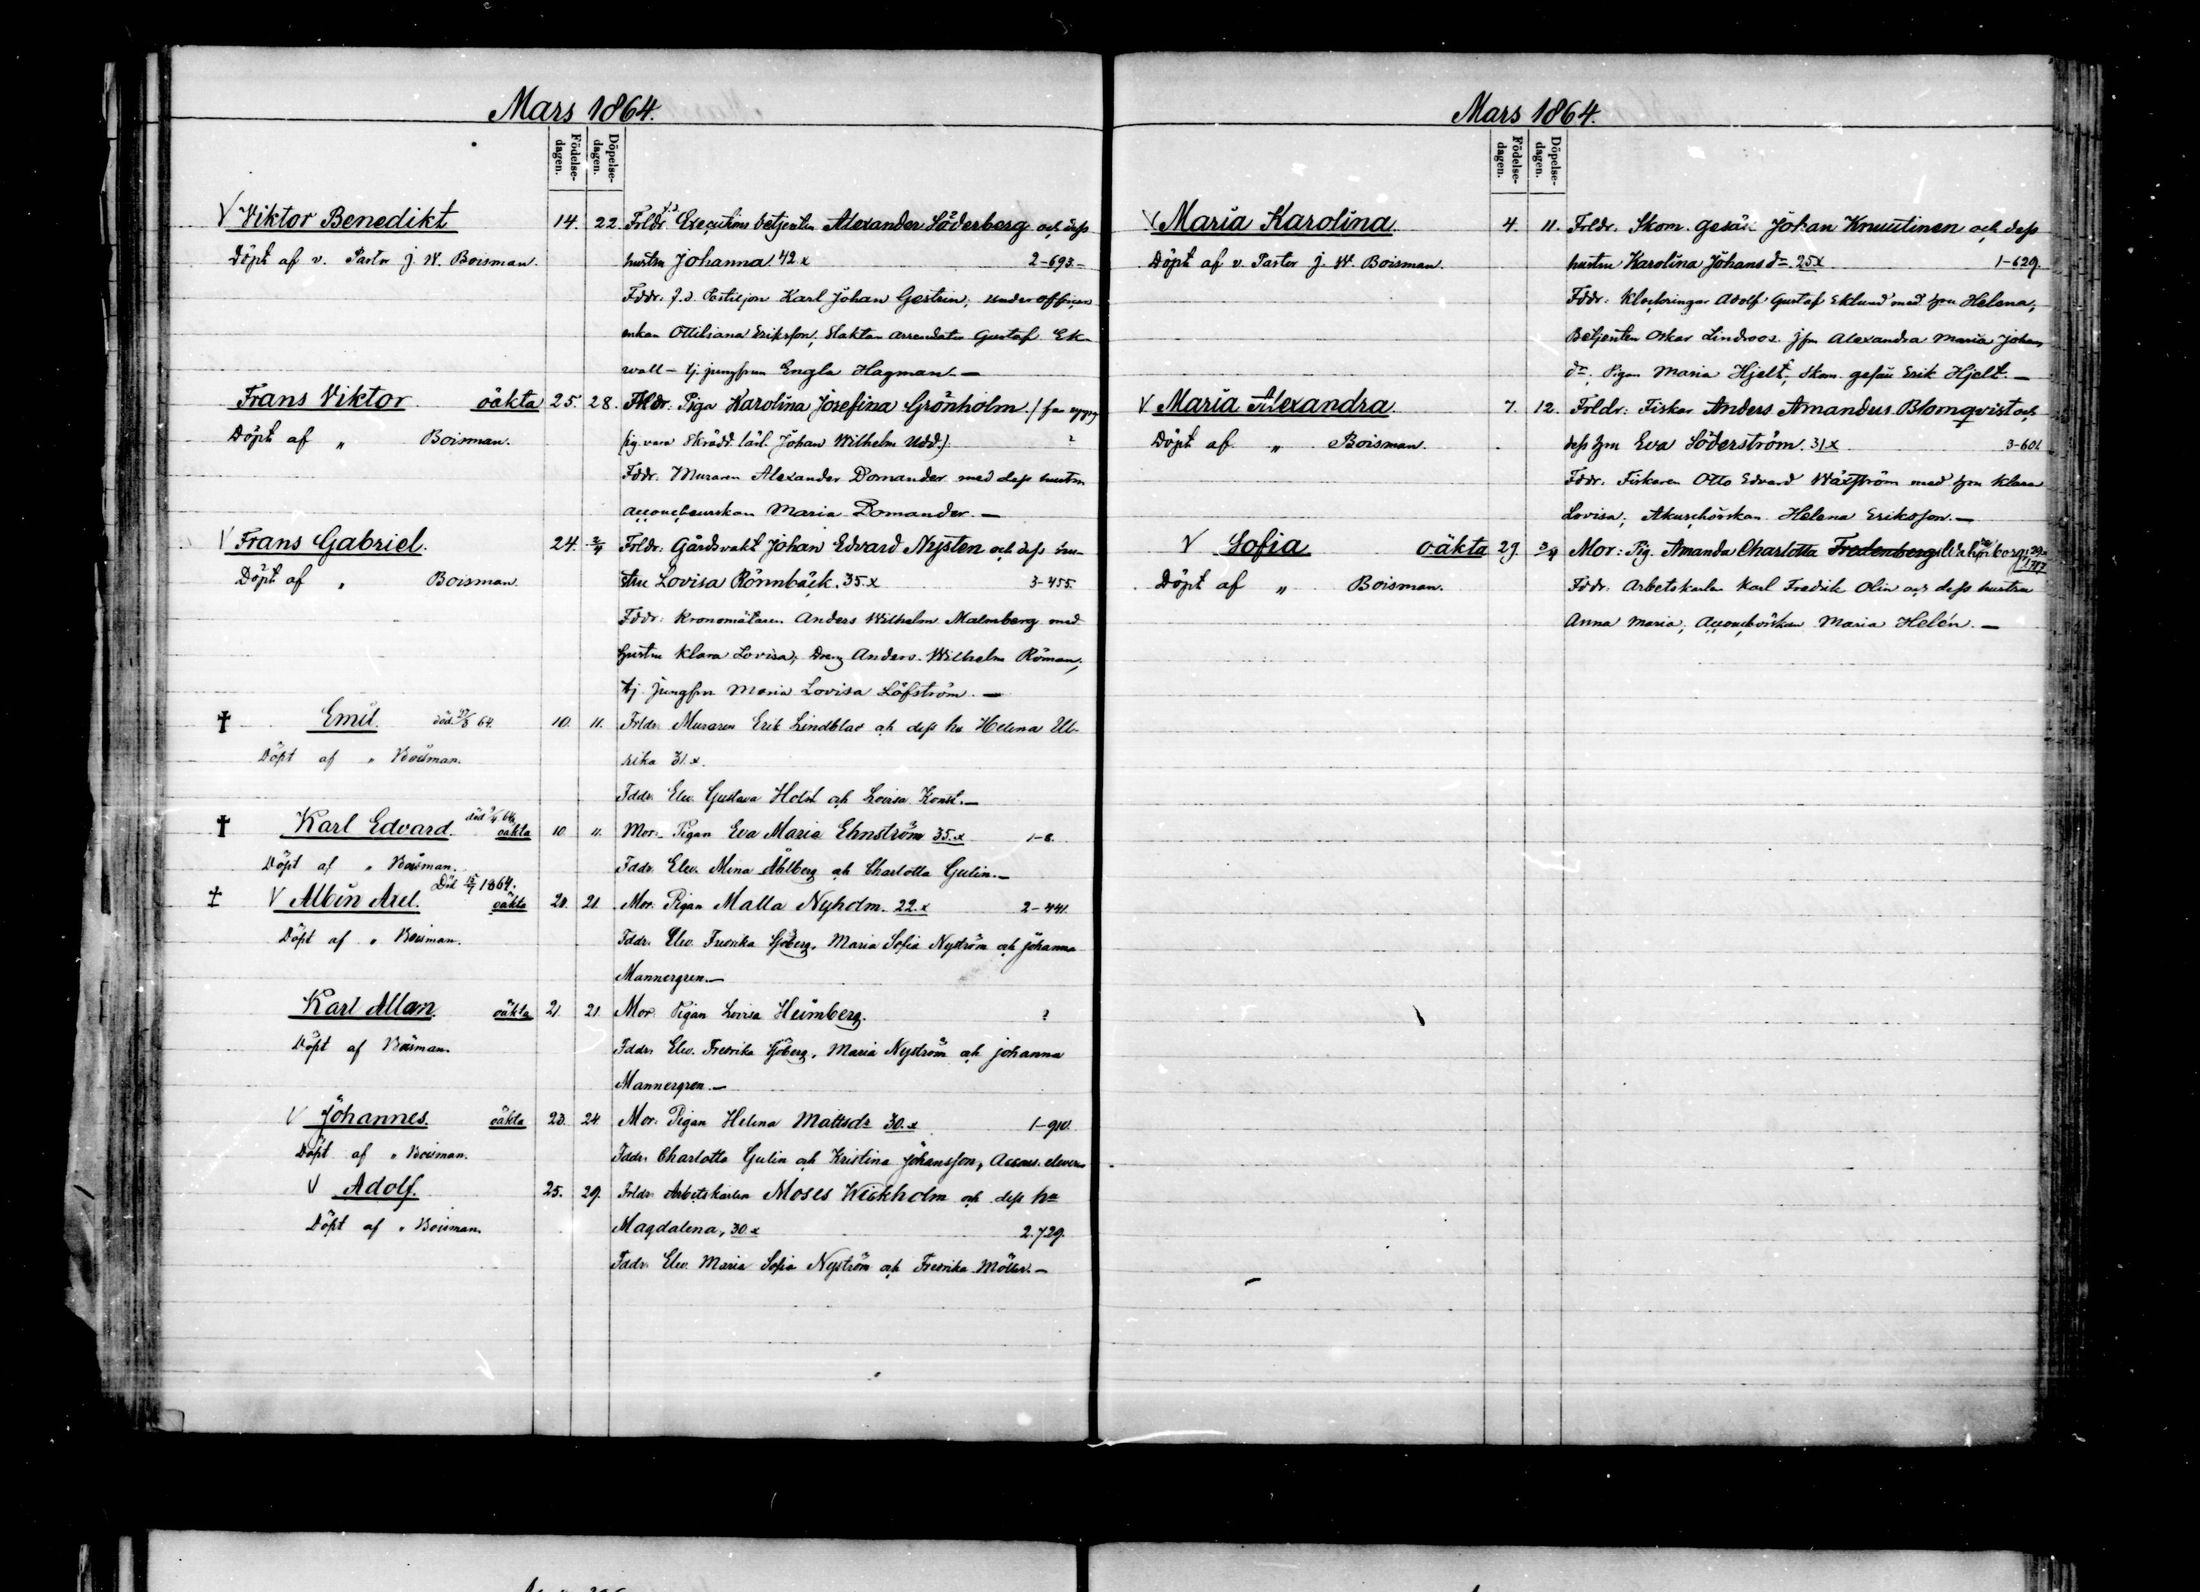 Mars 1864.
Födelse-dagen.
Döpelse-dagen.
V Viktor Benedikt 14. 22. Frldr. Executions betjenten Alexander Söderberg och dess
Döpt af v. Pastor J. W. Boisman. hustru Johanna 42 x 2-693-
Fddr: f.d. Postiljon Karl Johan Gestrin, underofficers
enkan Ottiliana Eriksson, Slaktan arrendator Gustaf Ek-
wall - tj. jungfrun Engla Hagman. —
Frans Viktor oäkta 25. 28. Piga Karolina Josefina Grönholm / far uppg
Döpt af „ Boisman. sig vara Skrädd. lärl. Johan Wilhelm Udd). ?
Fddr. Muraren Alexander Domander med dess hustru
Maria Domander. —
V Frans Gabriel. 24. 2/4 Frldr: Gårdsvakt Johan Edvard Nysten och dess hu-
Döpt af „ Boisman. stru Lovisa Rönnbäck. 35. x 3-455.
Fddr: Kronomätaren Anders Wilhelm Malmberg med
hustru Klara Lovisa; Dreng Anders Wilhelm Röman,
tj. jungfru Maria Lovisa Löfström. —
† Emil. död 64. 10. 11. Frldr. Muraren Erik Lindblad och dess hu Helena Ul-
Döpt af „ Boisman. rika 31. x.
Fddr. Elev. Gustava Holst och Lovisa Konst. —
† Karl Edvard. död 64. oäkta 10. 11. Mor. Pigan Eva Maria Ehnström 35. x 1-8.
Döpt af „ Boisman. Fddr. Elev. Mina Åhlberg och Charlotta Gulin. —
‡ V Albin Axel. Död 1864. oäkta 20. 21. Mor. Pigan Malla Nyholm. 22. x 2-441.
Döpt af „ Boisman. Fddr. Elev. Fredrika Sjöberg, Maria Sofia Nyström och Johanna
Mannergren. —
Karl Allan. oäkta 21. 21. Mor. Pigan Lovisa Heimberg. ?
Döpt af Boisman. Fddr. Elev. Fredrika Sjöberg, Maria Nyström och Johanna
Mannergren. —
V Johannes. oäkta 23. 24. Mor: Pigan Helena Mattsdr 30. x 1-910.
Döpt af „ Boisman. Fddr. Charlotta Gulin och Kristina Johansson, Accous. elever
V Adolf. 25. 29. Frldr. Arbetskarlen Moses Wickholm och dess hu
Döpt af „ Boisman. Magdalena, 30. x 2.729.
Fddr. Elev. Maria Sofia Nyström och Fredrika Möller. —
Mars 1864.
Födelse-dagen.
Döpelse-dagen.
V Maria Karolina 4. 11. Frldr. Skom. gesäll Johan Knuutinen och dess
Döpt af v. Pastor J. W. Boisman. hustru Karolina Johans dr. 25 x 1-629.
Fddr: Klockringar Adolf Gustaf Eklund med hru Helena,
Betjenten Oskar Lindroos. jfru Alexandra Maria Johans
dr, Pigan Maria Hjelt, Skom. gesäll Erik Hjelt. —
V Maria Alexandra. 7. 12. Frldr: Fiskar Anders Amandus Blomqvist och
Döpt af „ Boisman. dess hru Eva Söderström. 31 x 3-601.
Fddr. Fiskaren Otto Edvard Wäxström med hru Klara
Lovisa; Akuschörskan Helena Eriksson. —
V Sofia oäkta 29. 3/4 Mor: Pig. Amanda Charlotta Fredenberg
Döpt af „ Boisman. Fddr: Arbetskarlen Karl Fredrik Olin och dess hustru
Anna Maria; Maria Helén. —